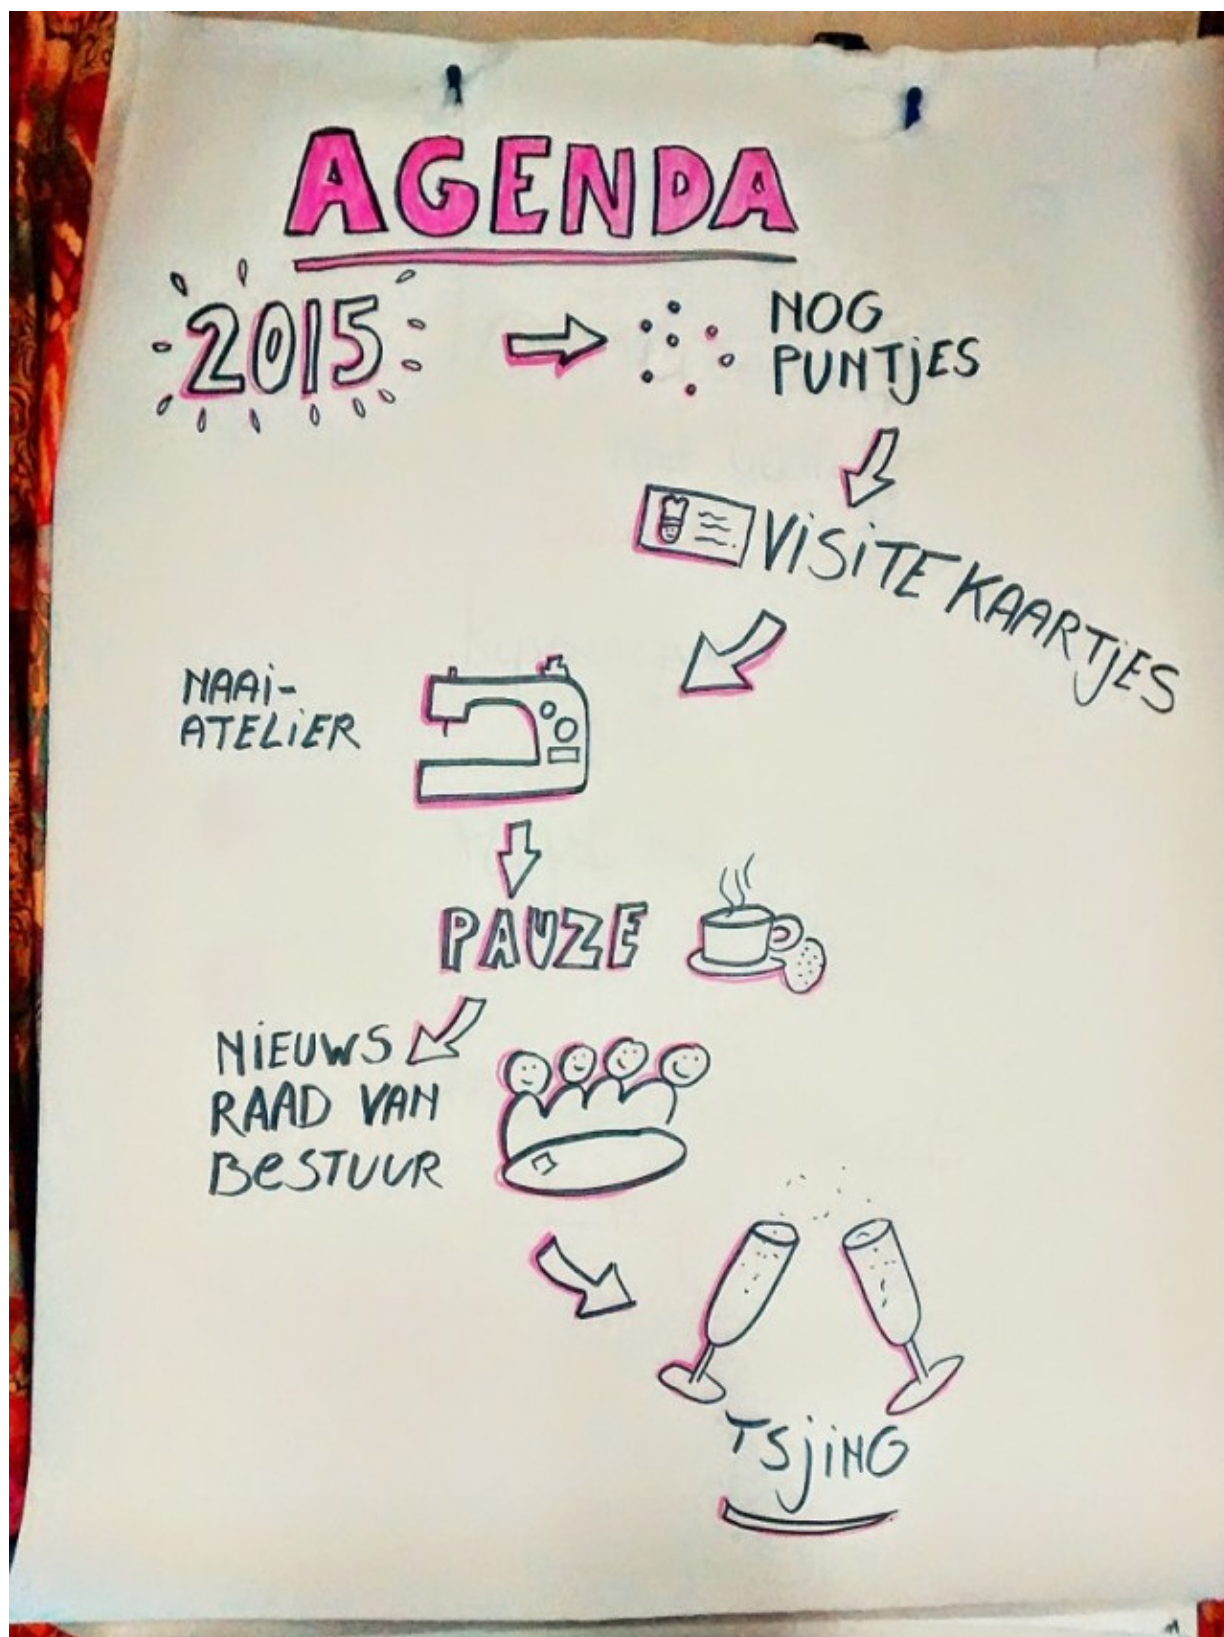 AGENDA
2015
NOG
PUNTjES
ViSiTEKAARTjES
NAAi-
ATELiER
PAUZE
NiEUWS
RAAD VAN
BeSTUUR
TSjiNG